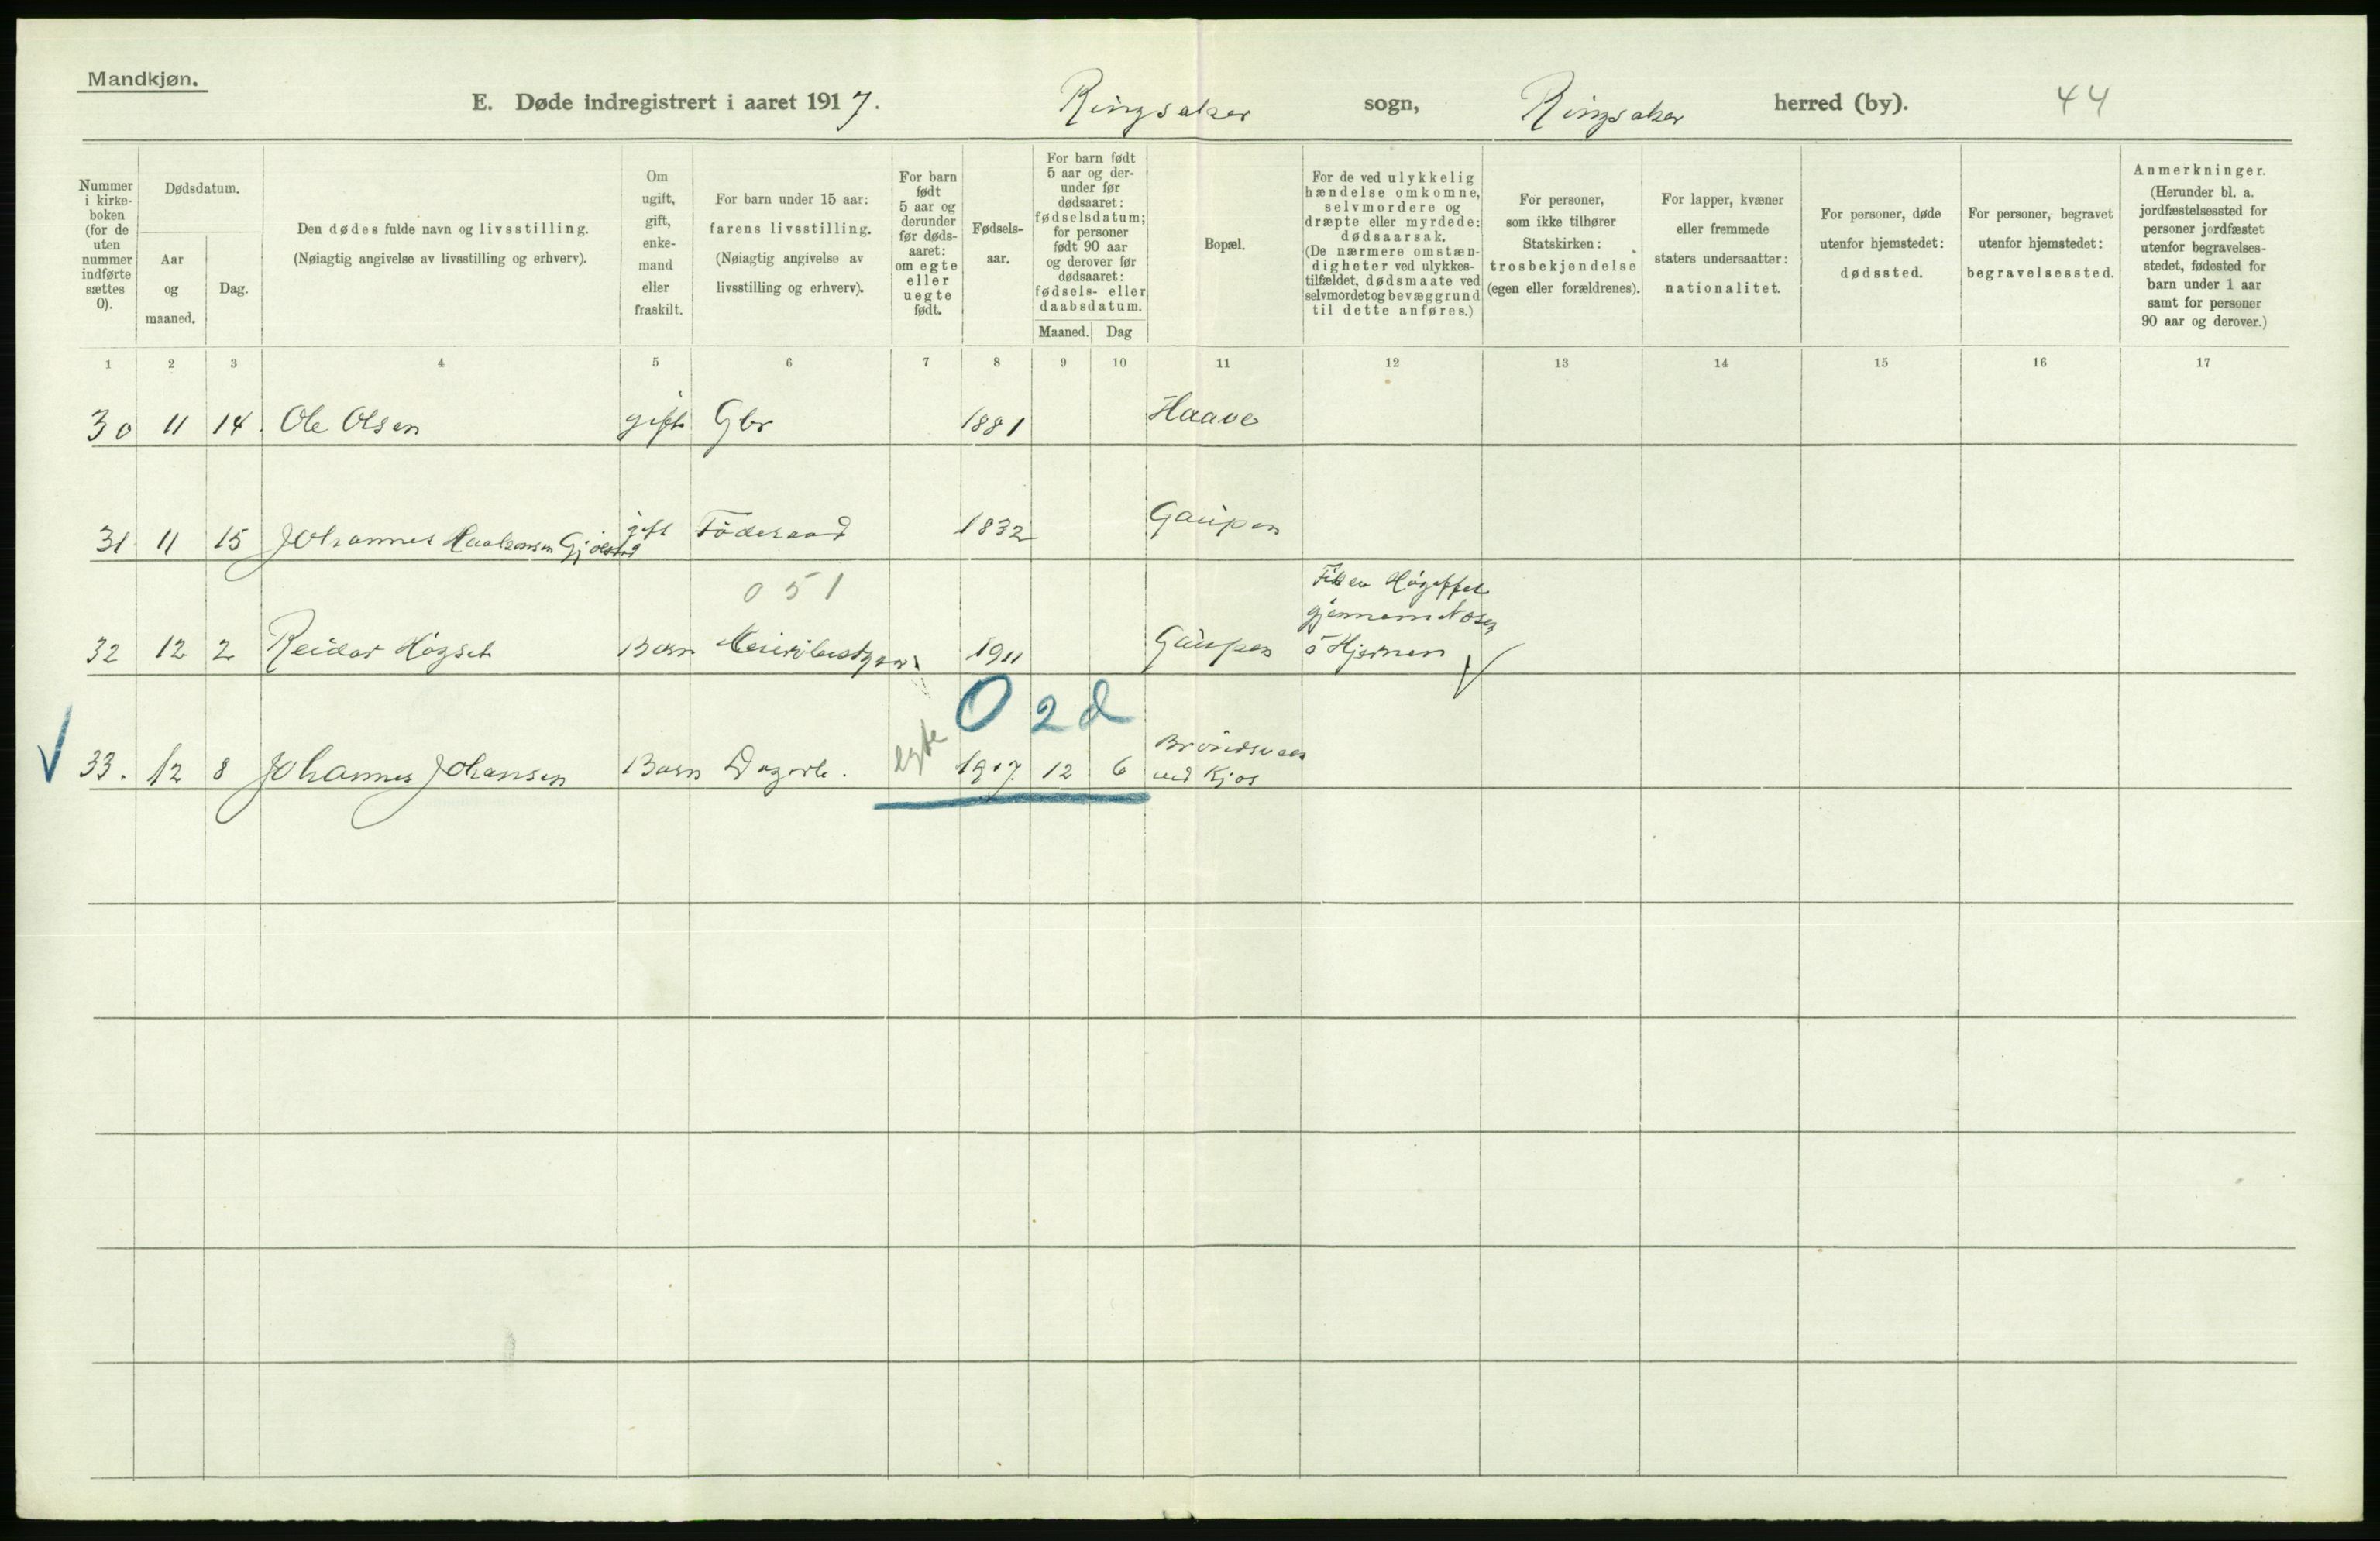 Mandkjøn.
E. Døde indregistrert i aaret 1917. Ringsaker sogn, Ringsaker herred (by). 44
Nummer
i kirke-
boken
(for de
uten
nummer
indførte
sættes
0).
Dødsdatum.
Aar
og
maaned.
Dag.
Den dødes fulde navn og livsstilling.
(Nøiagtig angivelse av livsstilling og erhverv).
Om
ugift,
gift,
enke-
mand
eller
fraskilt.
For barn under 15 aar:
farens livsstilling.
(Nøiagtig angivelse av
livsstilling og erhverv).
For barn
født
5 aar og
derunder
før døds-
aaret:
om egte
eller
uegte
født.
Fødsels-
aar.
For barn født
5 aar og der-
under før
dødsaaret:
fødselsdatum;
for personer
født 90 aar
og derover før
dødsaaret:
fødsels- eller
daabsdatum.
Maaned. Dag
Bopæl.
For de ved ulykkelig
hændelse omkomne,
selvmordere og
dræpte eller myrdede:
dødsaarsak.
(De nærmere omstæn-
digheter ved ulykkes-
tilfældet, dødsmaate ved
selvmordet og bevæggrund
til dette anføres.)
For personer,
som ikke tilhører
Statskirken:
trosbekjendelse
(egen eller forældrenes).
For lapper, kvæner
eller fremmede
staters undersaatter:
nationalitet.
For personer, døde
utenfor hjemstedet:
dødssted.
For personer, begravet
utenfor hjemstedet:
begravelsessted.
Anmerkninger.
(Herunder bl. a.
jordfæstelsessted for
personer jordfæstet
utenfor begravelses-
stedet, fødested for
barn under 1 aar
samt for personer
90 aar og derover.)
1 2 3 4 5 6 7 8 9 10 11 12 13 14 15 16 17
30 11 14. Ole Olsen gift Gbr 1881 Haave
31 11 15 Johannes Haakensen gift Føderaad 1832 Gaupen
051
32 12 2 Reidar Høgset Barn 1911 Gaupen
gjennem Nesen
o Hjernen
0 2 d
33. 12 8 Johannes Johansen Barn Dagarb. egte 1917. 12 6
ved Kjos